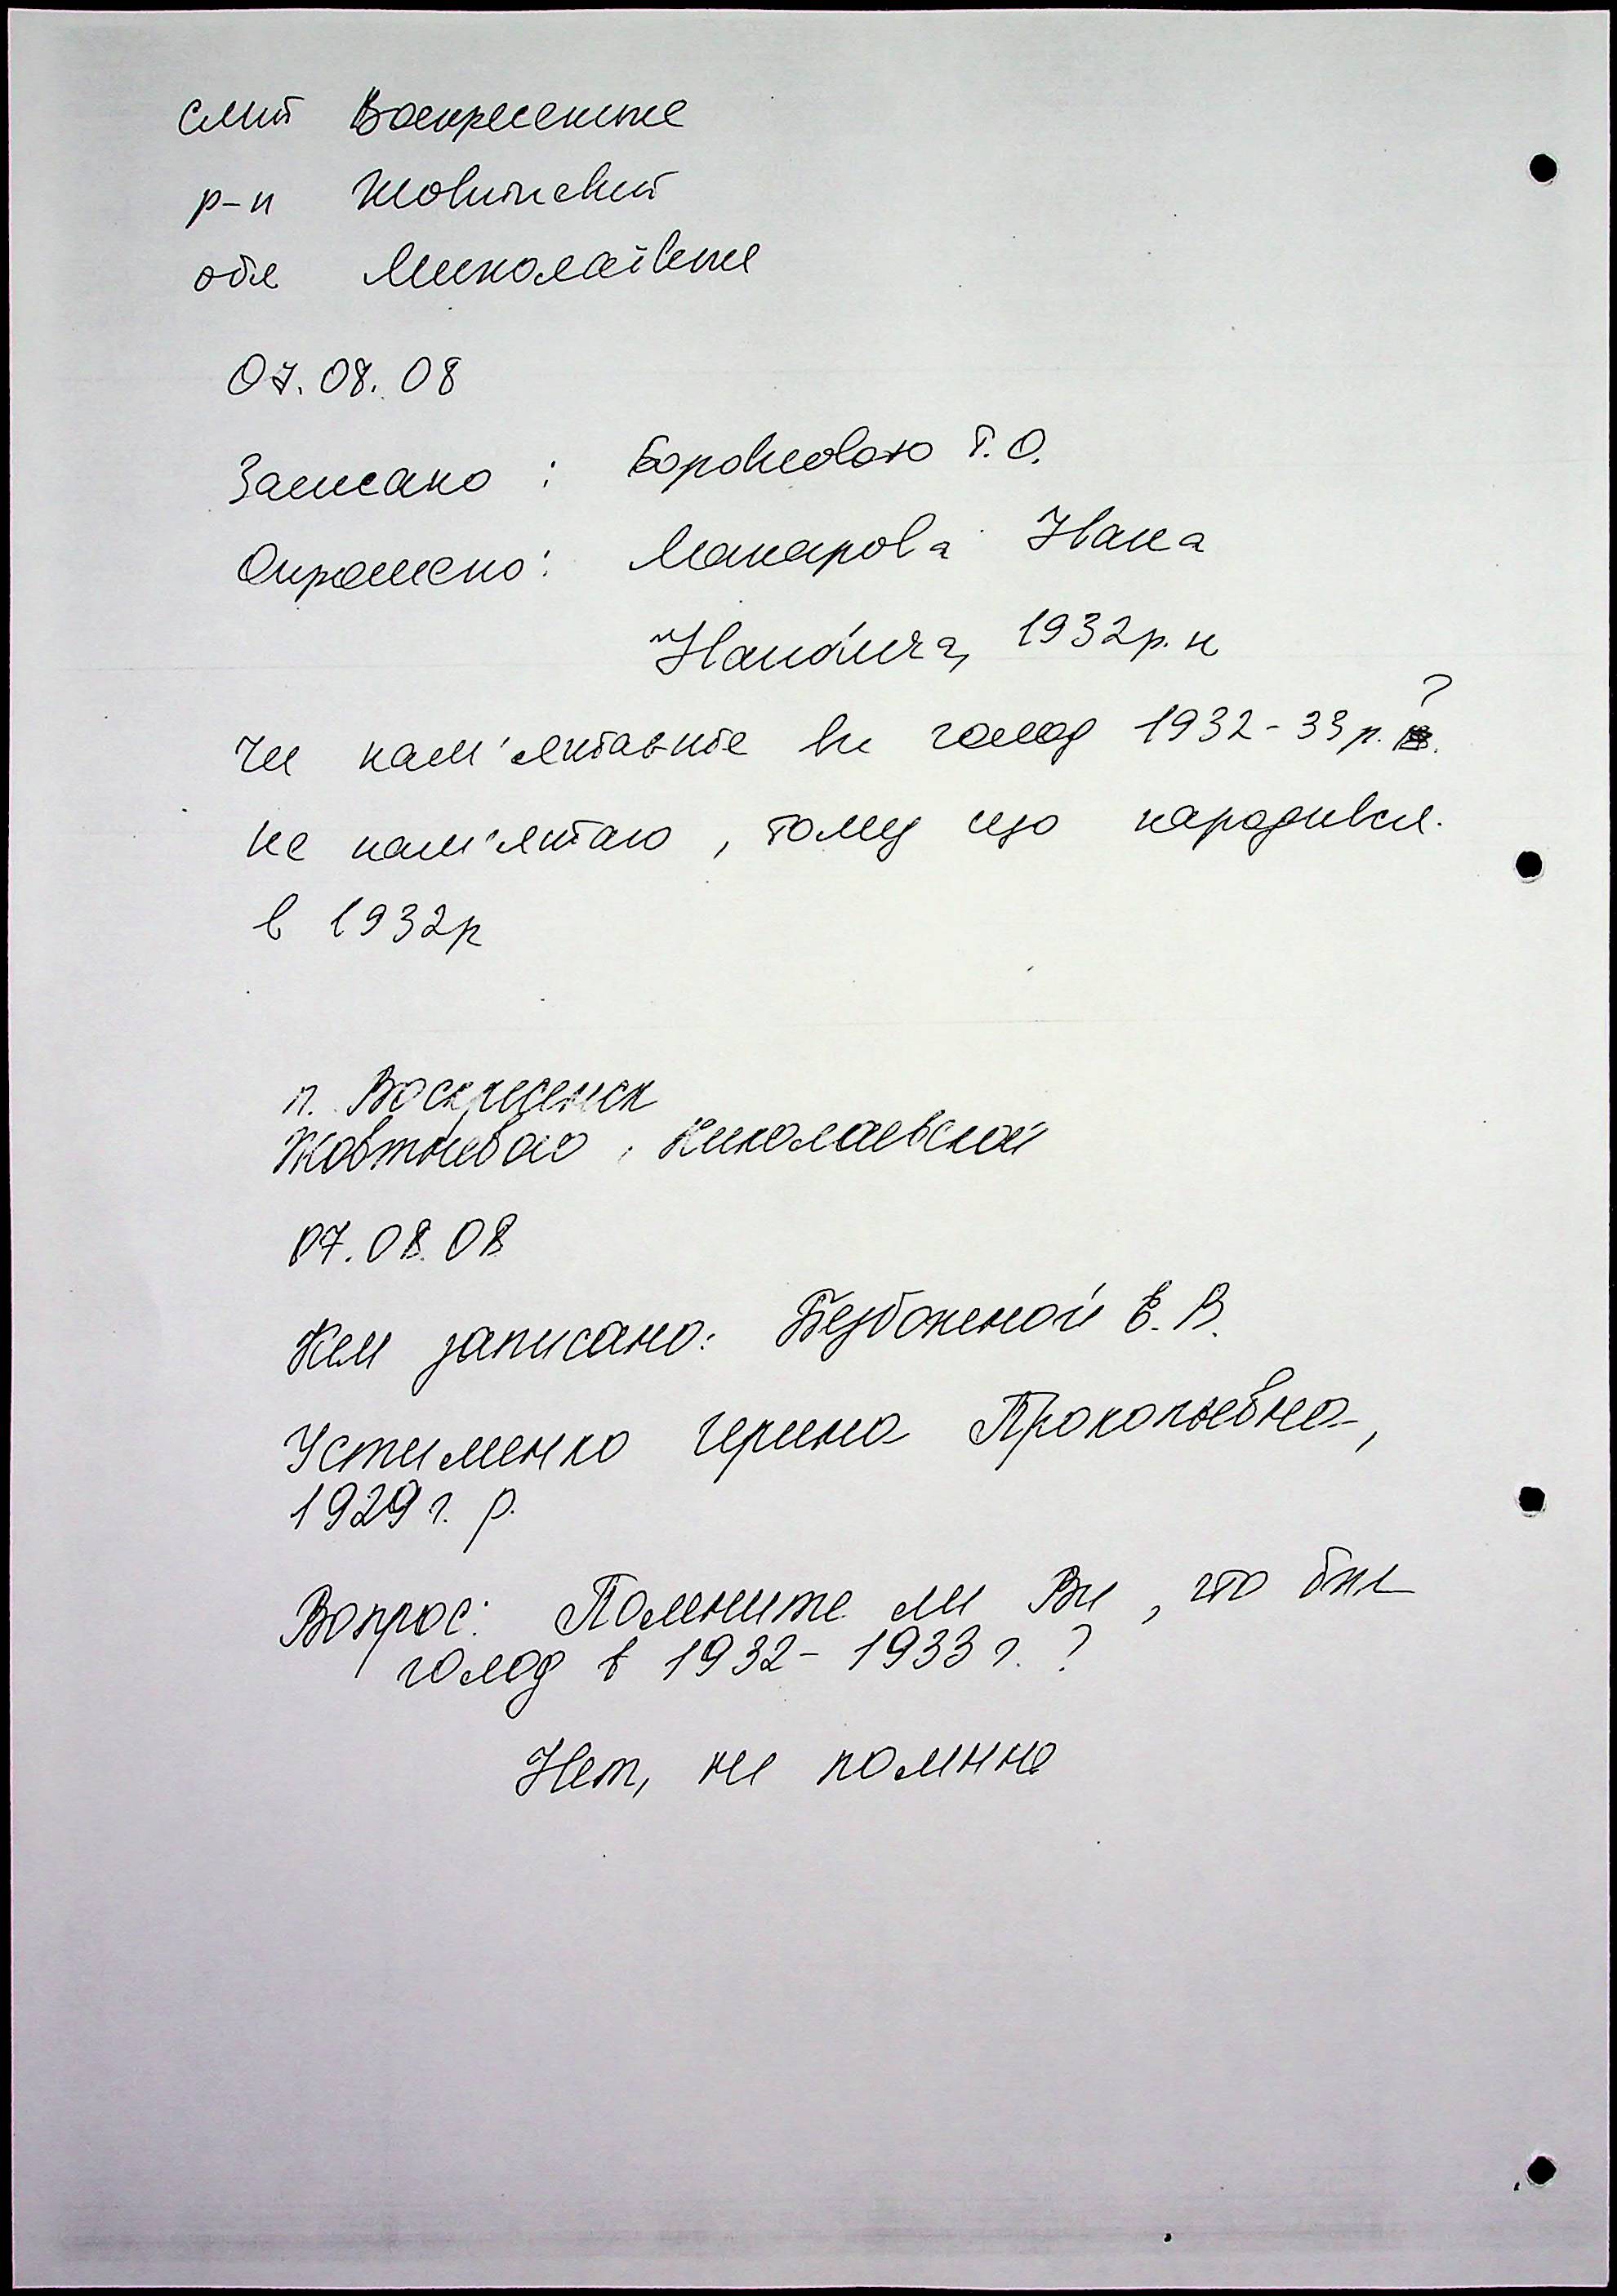 смт Воскресенське
р-н Жовтневий
обл Миколаївське
07.08.08
Записано :
Т.О.
Опрошено: Макарова Івана
Івановича, 1932 р. н
Чи пам'ятаєте ви голод 1932-33 р. ?
не пам'ятаю, тому що народився
в 1932 р
п. Воскресенск
Жовтневого, Николаевской
07.08.08
Кем записано: Безбоженой Е.В.
Устименко Ирина Прокопьевна,
1929 г. р.
Вопрос: Помените ли Вы, что был
голод в 1932-1933 г. ?
Нет, не помню